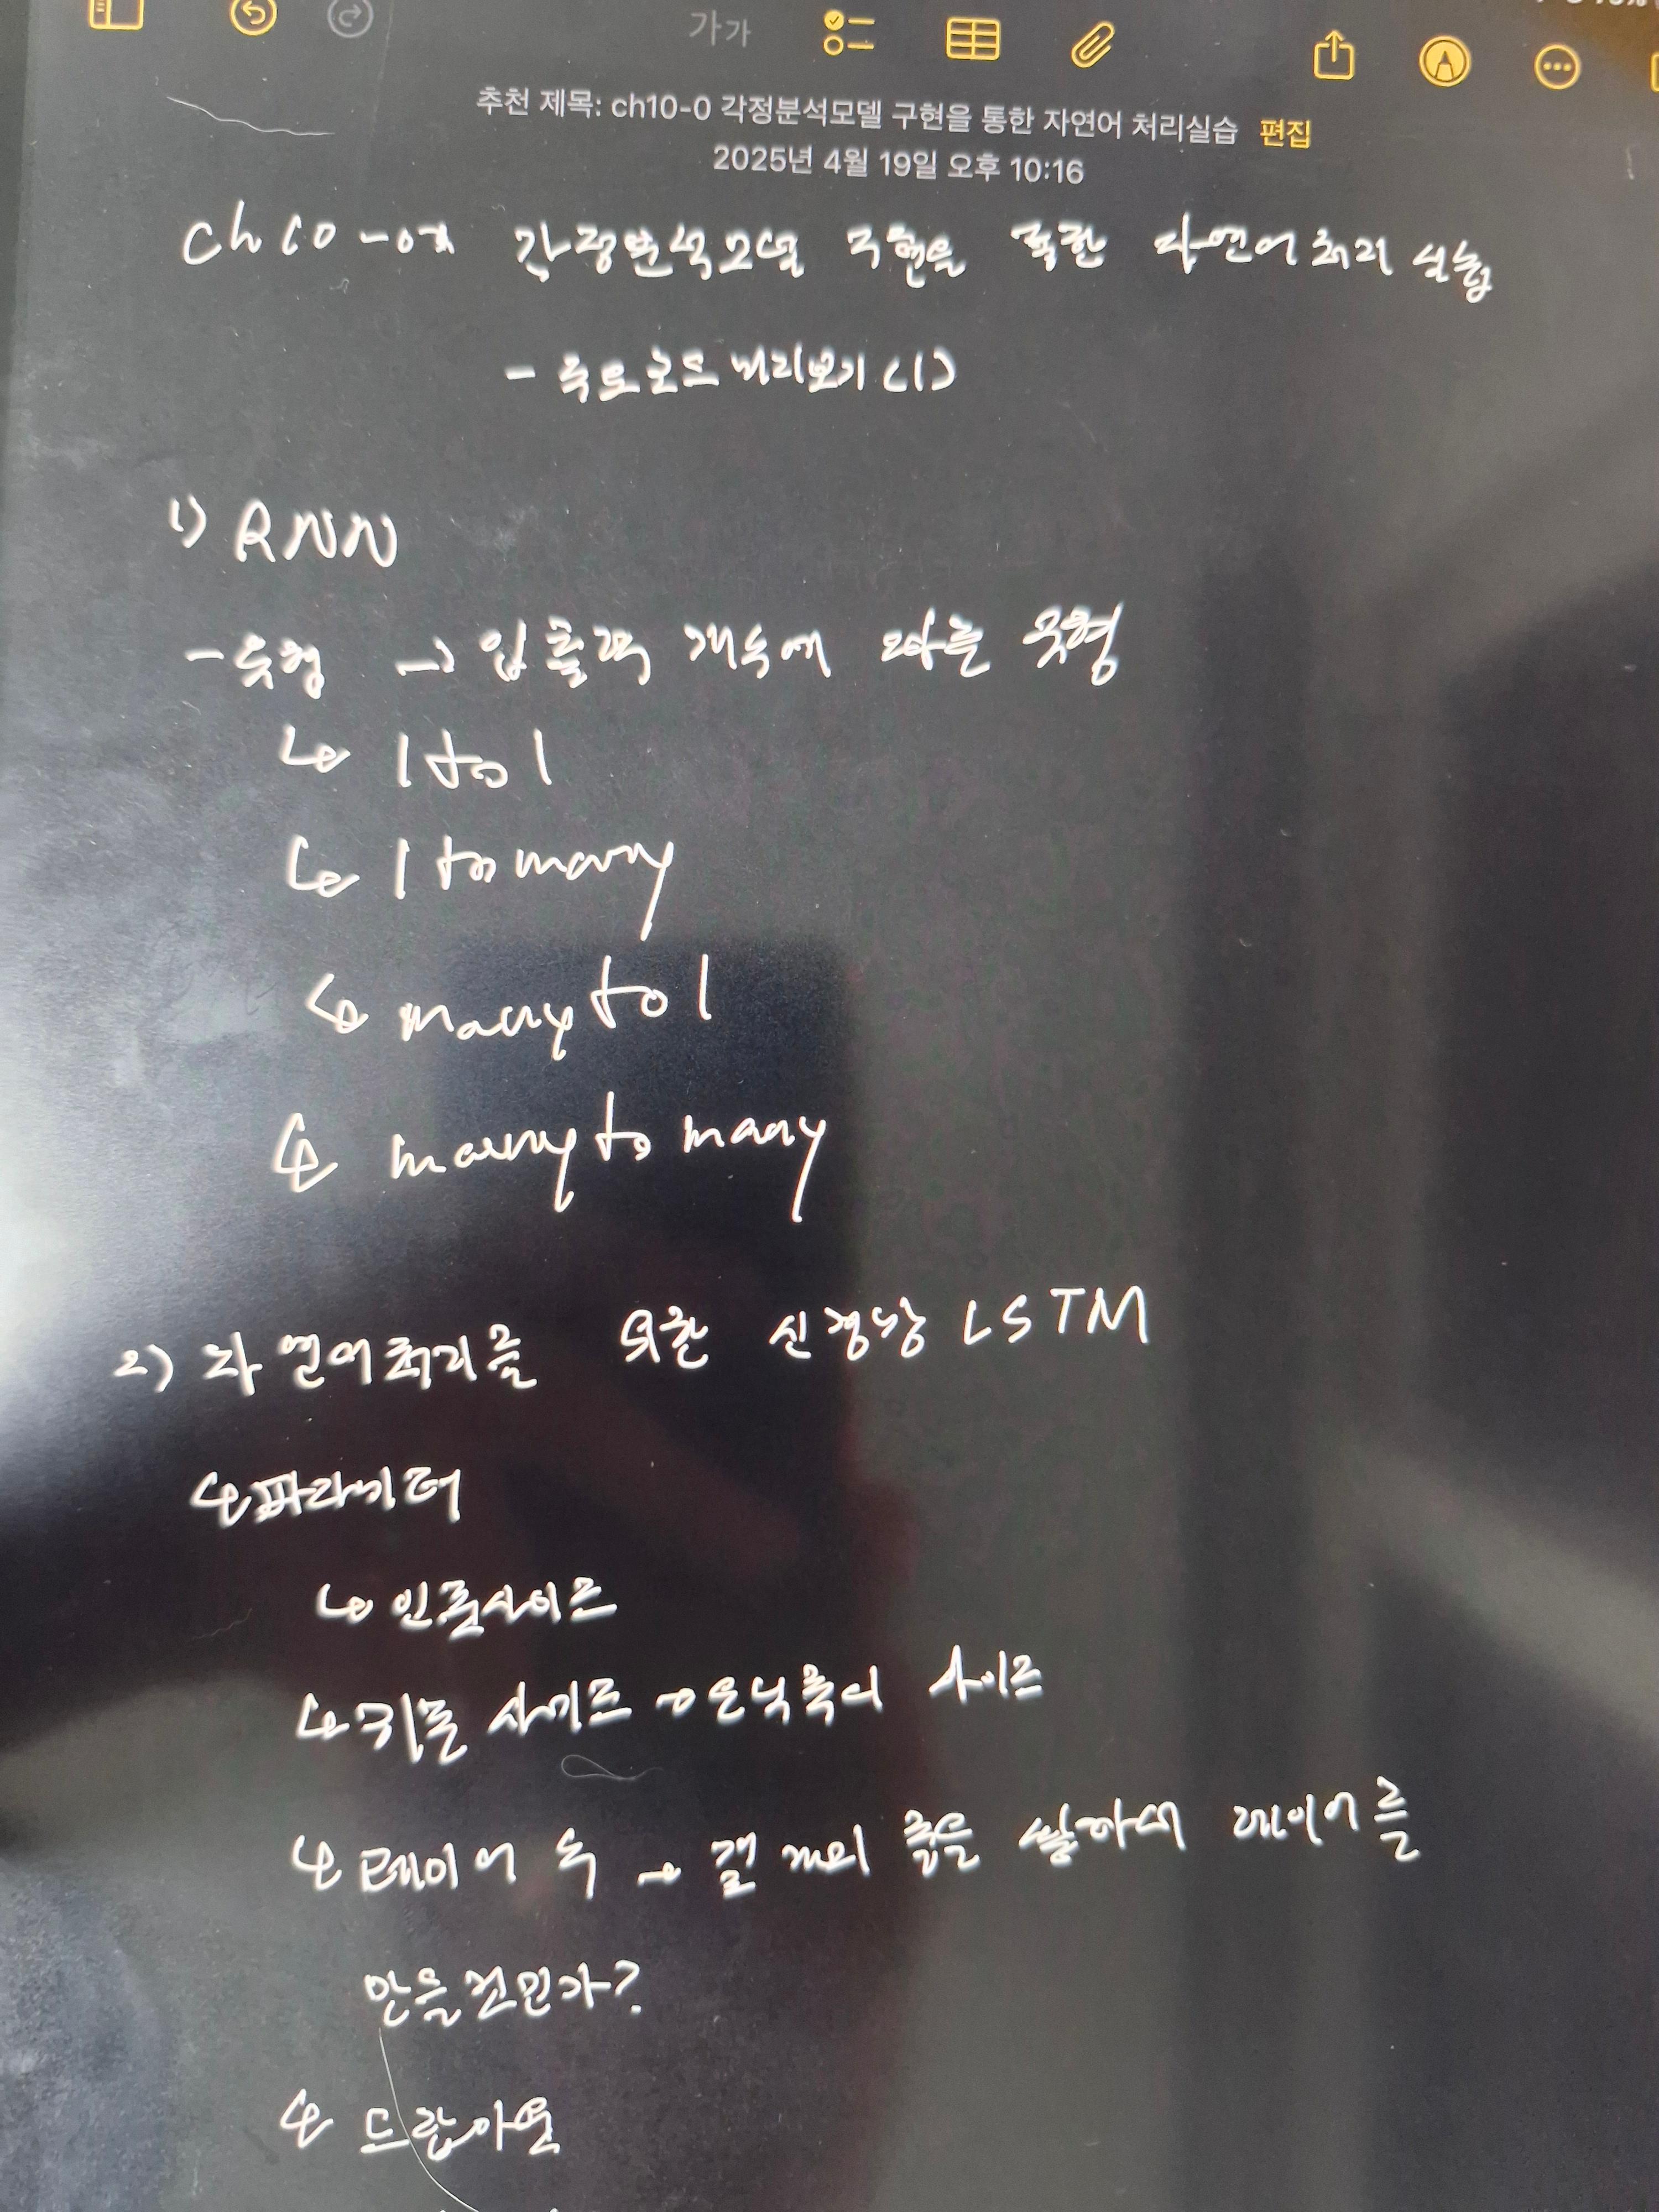 가가
추천 제목: ch10-0 각정분석모델 구현을 통한 자연어 처리실습 편집
2025년 4월 19일 오후 10:16
ch10-0 감정분석모델 구현을 통한 자연어처리 실습
- 주요코드 미리보기(1)
1) RNN
- 유형 → 입출력 개수에 따른 유형
↳ 1 to 1
↳ 1 to many
↳ many to 1
↳ many to many
2) 자연어처리를 위한 신경망 LSTM
↳ 파라미터
↳ 인풋사이즈
↳ 히든 사이즈 → 은닉층의 사이즈
↳ 레이어 수 → 몇 개의 층을 쌓아서 레이어를
만들 것인가?
↳ 드랍아웃